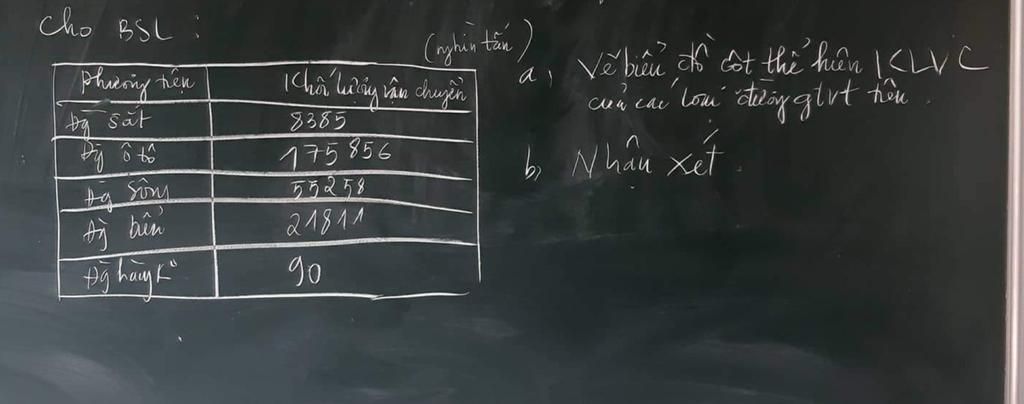 Cho BSL :
(nghìn tấn)
Phương tiện | Khối lượng vận chuyển
Đg sắt | 8385
Đg ô tô | 175 856
Đg sông | 55258
Đg biển | 21811
Đg hàng K° | 90
a, Vẽ biểu đồ cột thể hiện KLVC
của các loại đường gtvt trên.
b, Nhận xét.